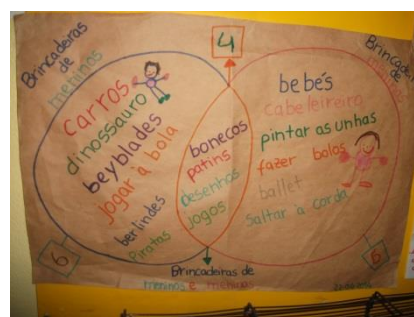 Brincadeiras
de
meninos
4
Brincadeiras
de
carros
dinossauro
beyblades
jogar à bola
berlindes
Piratas
bonecos
patins
desenhos
jogos
bebés
cabeleireiro
pintar as unhas
fazer bolos
ballet
Saltar à corda
6
6
Brincadeiras de
meninos e meninas